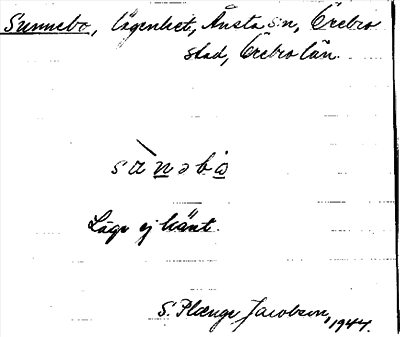 Sunnebo, lägenhet, Ånsta sn, Örebro
stad, Örebro län.
Läge ej känt.
S. Plænge Jacobson, 1944.